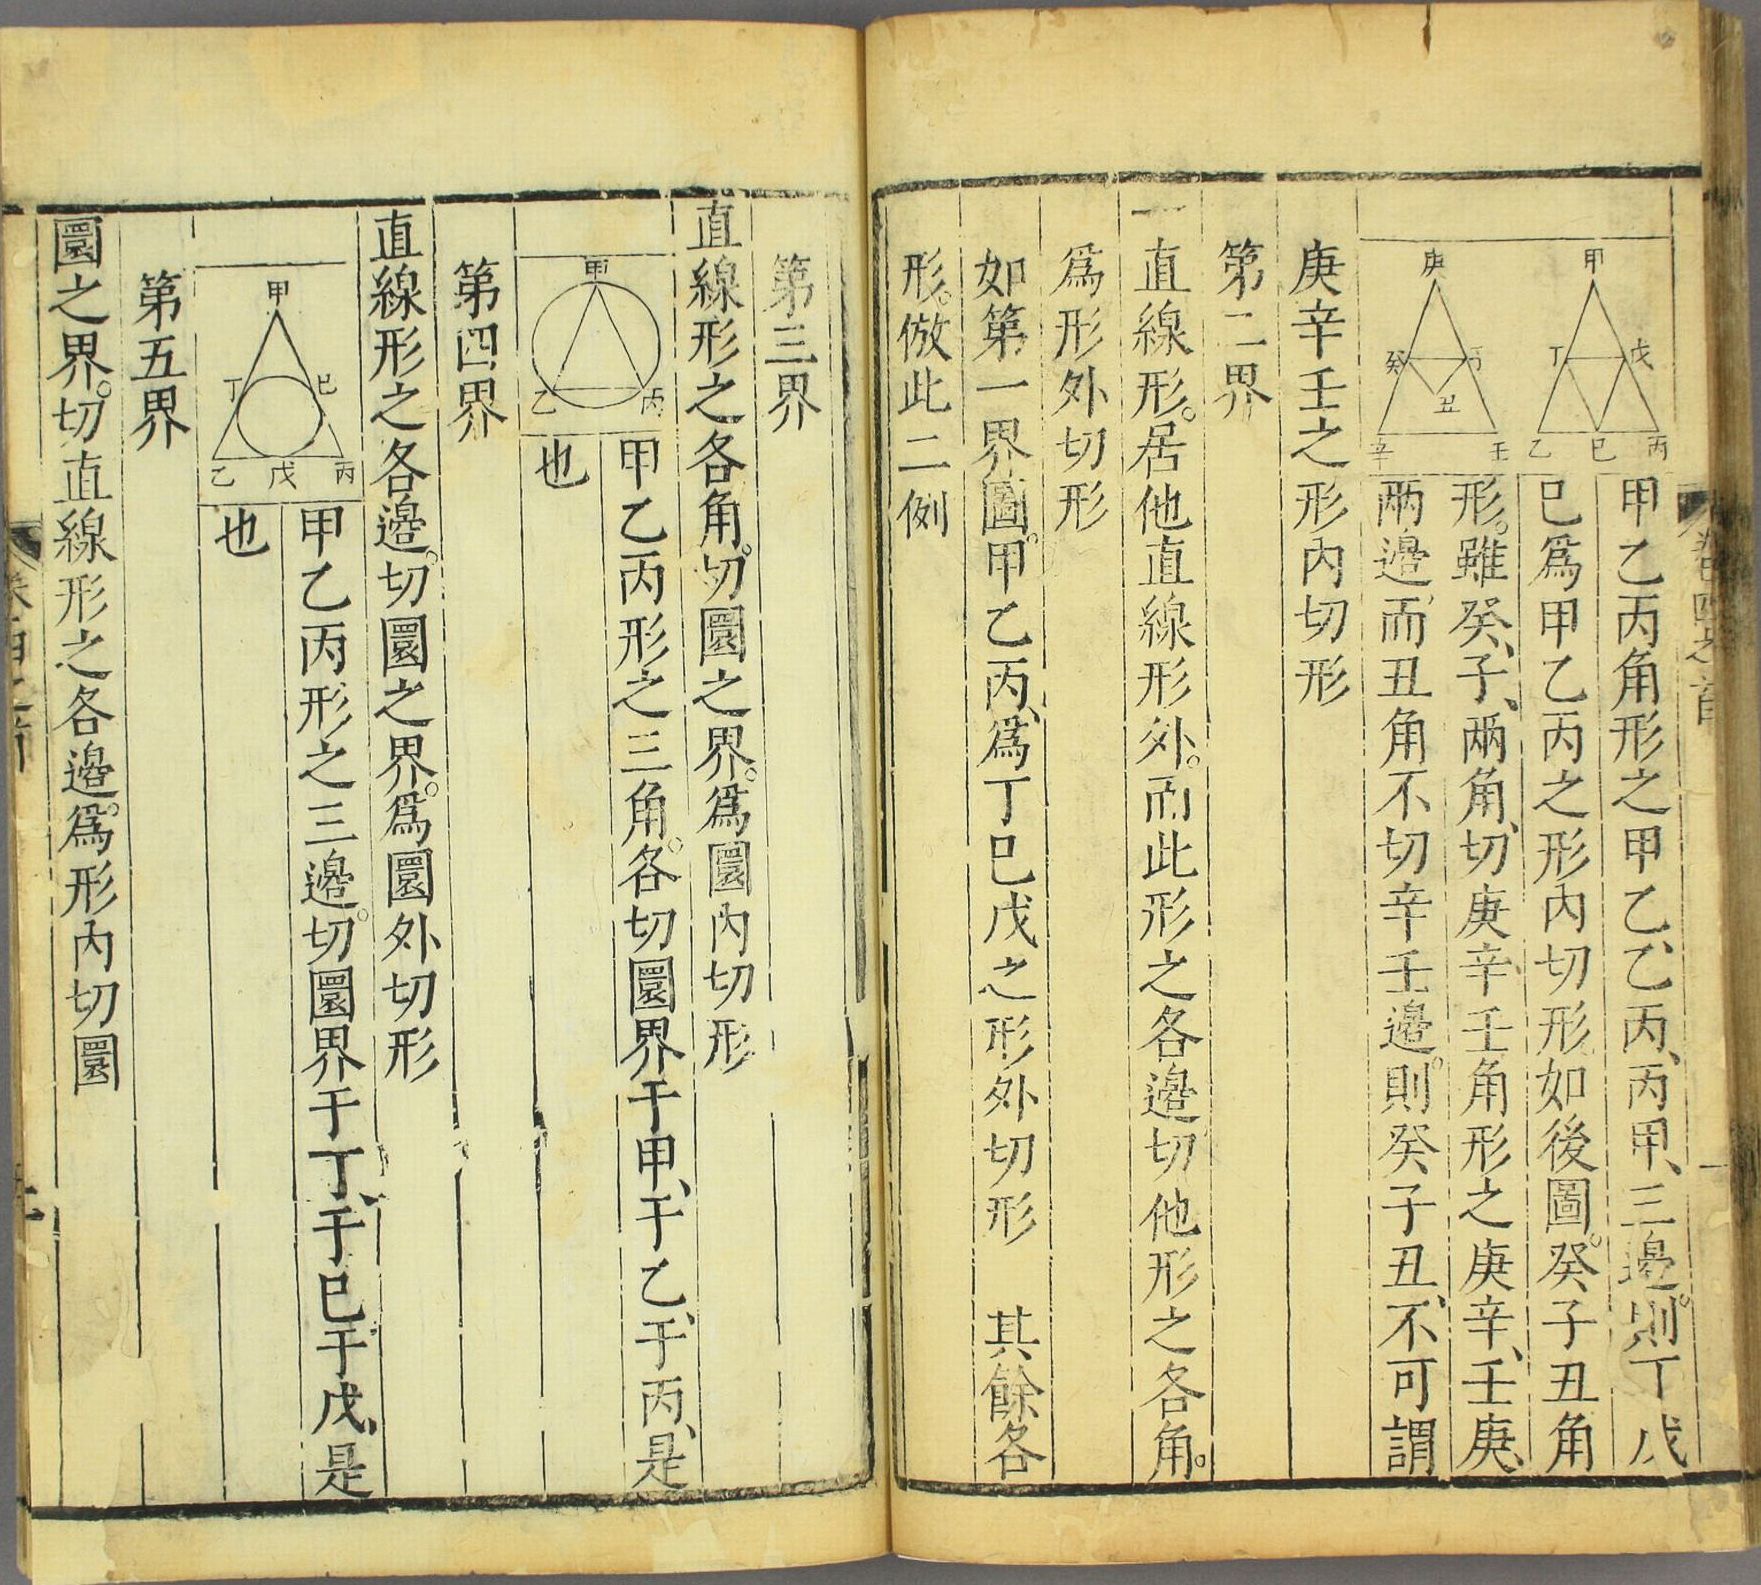 甲
丁
戊
乙
巳
丙
庚
癸
丑
辛
壬
甲乙丙角形之甲乙、乙丙、丙甲、三邊。則丁戊
巳爲甲乙丙之形內切形如後圖。癸子丑角
形。雖癸、子、兩角、切庚辛壬角形之庚辛、壬庚、
兩邊、而丑角不切辛壬邊。則癸子丑、不可謂
庚辛壬之形內切形
第二界
一直線形。居他直線形外。而此形之各邊切他形之各角。
爲形外切形
如第一界圖。甲乙丙、爲丁巳戊之形外切形　其餘各
形。倣此二例
卷四之首
一
第三界
直線形之各角。切圜之界。爲圜內切形
甲
乙
丙
甲乙丙形之三角。各切圜界于甲、于乙、于丙、是
也
第四界
直線形之各邊。切圜之界。爲圜外切形
甲
丁
巳
乙
戊
丙
甲乙丙形之三邊。切圜界于丁、于巳、于戊、是
也
第五界
圜之界。切直線形之各邊。爲形內切圜